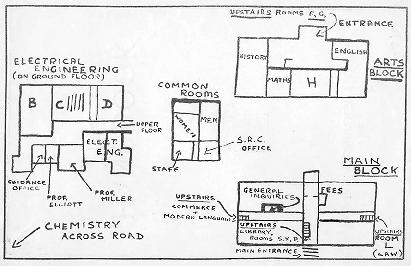 UPSTAIRS ROOMS F, G,
ENTRANCE
HISTORY
ENGLISH
MATHS
H
ARTS
BLOCK
ELECTRICAL
ENGINEERING
(ON GROUND FLOOR)
B
C
D
UPPER
FLOOR
ELECT.
ENG.
GUIDANCE
OFFICE
PROF.
ELLIOTT
PROF.
MILLER
COMMON
ROOMS
WOMEN
MEN
S.R.C.
OFFICE
STAFF
MAIN
BLOCK
GENERAL
INQUIRIES
FEES
UPSTAIRS
COMMERCE
MODERN LANGUAGES
UPSTAIRS
LIBRARY,
ROOMS S,X,P,
UPSTAIRS
ROOM
L
(LAW)
MAIN ENTRANCE
CHEMISTRY
ACROSS ROAD